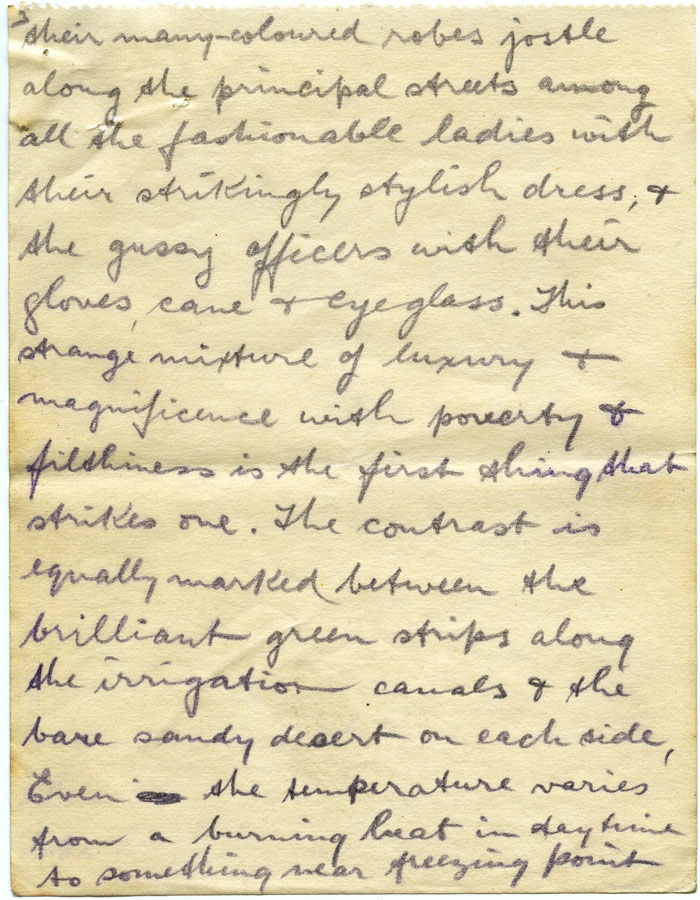 3
their many-coloured robes jostle
along the principal streets among
all the fashionable ladies with
their strikingly stylish dress, &
the gussy officers with their
gloves, cane & eyeglass. This
strange mixture of luxury &
magnificence with poverty &
filthiness is the first thing that
strikes one. The contrast is
equally marked between the
brilliant green strips along
the irrigation canals & the
bare sandy desert on each side,
Even the temperature varies
from a burning heat in daytime
to something near freezing point